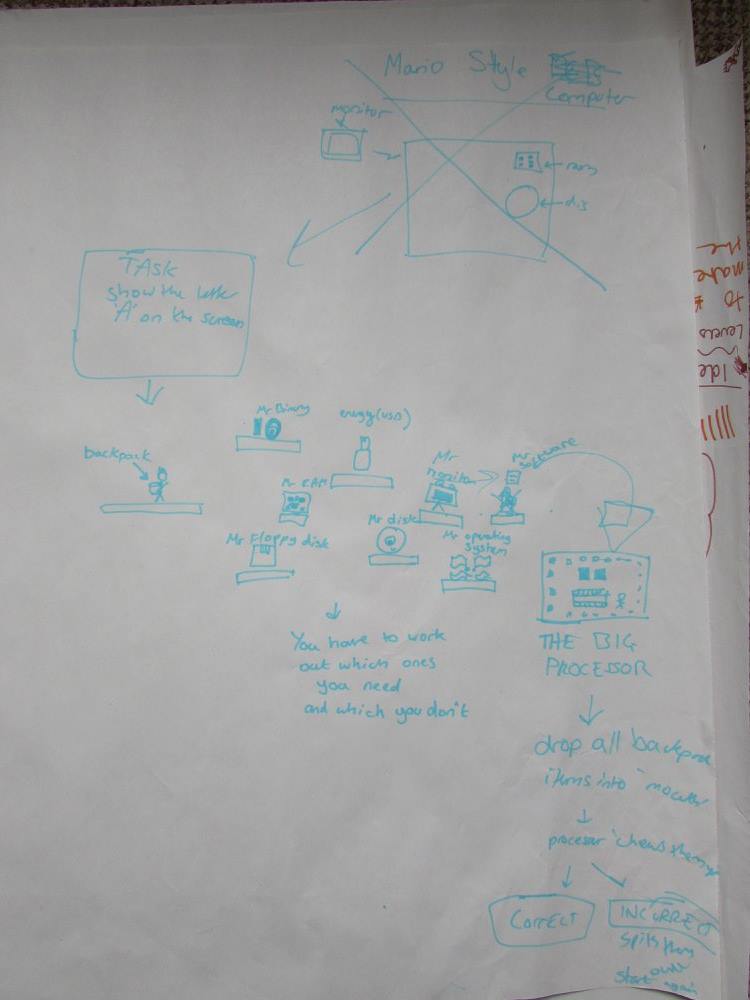 Mario Style
Computer
monitor
ram
dis
TASK
show the letter
'A' on the screen
Mr Binary
energy (USB)
backpack
Mr
monitor
Mr
software
Mr RAM
Mr Floppy disk
Mr disk
Mr operating
system
THE BIG
PROCESSOR
You have to work
out which ones
you need
and which you don't
drop all backpack
items into mouth
processor 'chews them up'
CORRECT
INCORRECT
spits them
out
start again
Ide
Levels
to
make
the